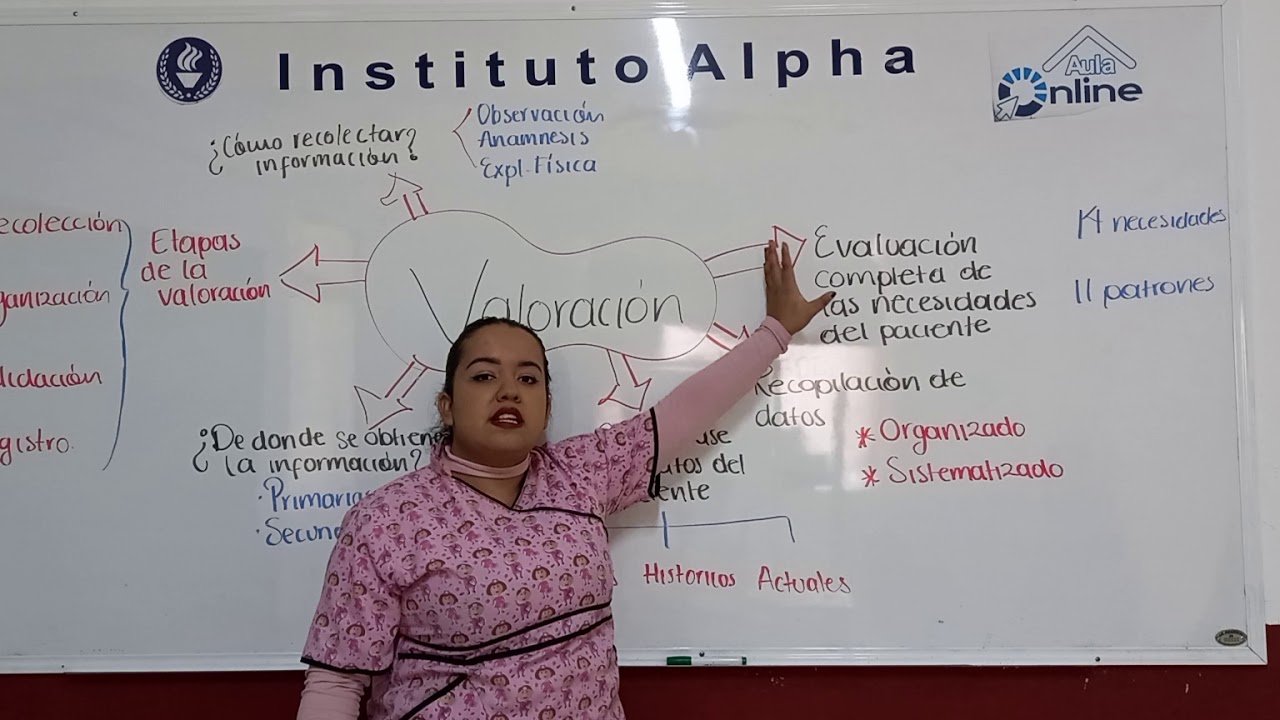 Instituto Alpha
Aula
Online
¿Cómo recolectar
información?
Observación
Anamnesis
Expl. Física
Etapas
de la
valoración
Valoración
Evaluación
completa de
las necesidades
del paciente
14 necesidades
11 patrones
Recopilación de
datos
* Organizado
* Sistematizado
¿De donde se obtiene
la información?
· Primarias
del
Historicos Actuales